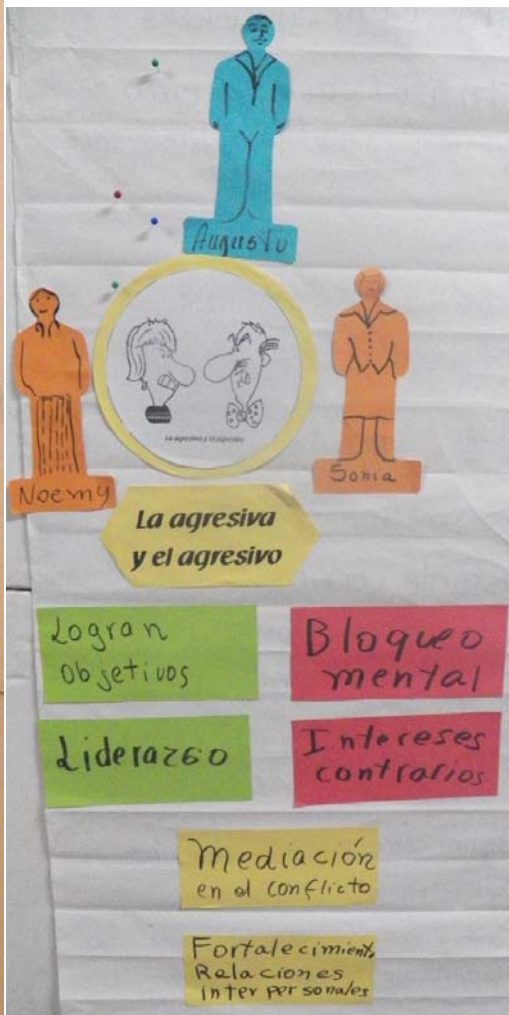 Augusto
La agresiva y el agresivo
Noemy
Sonia
La agresiva
y el agresivo
Logran
Objetivos
Bloqueo
mental
Liderazgo
Intereses
contrarios
Mediación
en el conflicto
Fortalecimiento
Relaciones
interpersonales